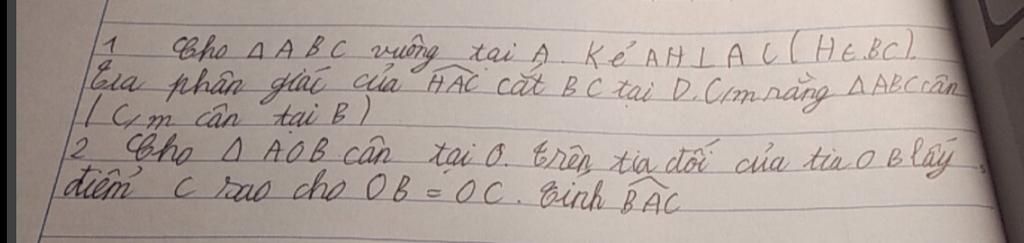 1 Cho Δ A B C vuông tại A. Kẻ AH ⊥ A C (H ∈ BC).
Tia phân giác của \widehat{HAC} cắt BC tại D. C/m rằng Δ ABC cân
(C/m cân tại B)
2 Cho Δ AOB cân tại O. Trên tia đối của tia OB lấy
điểm C sao cho OB = OC. Tính \widehat{BAC}